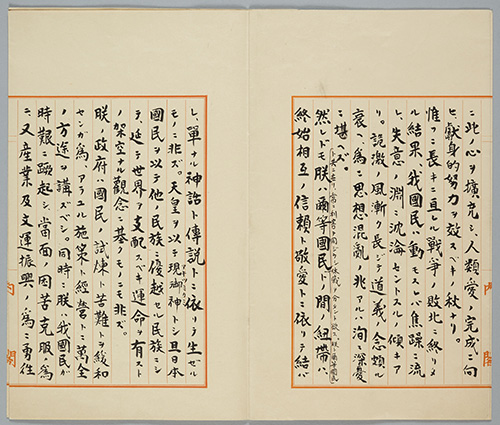 ニ此ノ心ヲ擴充シ、人類愛ノ完成ニ向
ヒ、獻身的努力ヲ效スベキノ秋ナリ。
惟フニ長キニ亘レル戰爭ノ敗北ニ終リタ
ル結果、我國民ハ動モスレバ焦躁ニ流
レ、失意ノ淵ニ沈淪セントスルノ傾キア
リ。詭激ノ風漸ク長ジテ道義ノ念頗ル
衰ヘ、爲ニ思想混亂ノ兆アルハ洵ニ深憂
ニ堪ヘズ。
然レドモ朕ハ爾等國民ト共ニ在リ、常ニ利害ヲ同ジウシ休戚ヲ分タント欲ス。朕ト爾等國民トノ間ノ紐帶ハ、
終始相互ノ信賴ト敬愛トニ依リテ結バ
レ、單ナル神話ト傳說トニ依リテ生ゼル
モノニ非ズ。天皇ヲ以テ現御神トシ且日本
國民ヲ以テ他ノ民族ニ優越セル民族ニシ
テ、延テ世界ヲ支配スベキ運命ヲ有スト
ノ架空ナル觀念ニ基クモノニモ非ズ。
朕ノ政府ハ國民ノ試煉ト苦難トヲ緩和
センガ爲、アラユル施策ト經營トニ萬全
ノ方途ヲ講ズベシ。同時ニ朕ハ我國民ガ
時艱ニ蹶起シ、當面ノ困苦克服ノ爲
ニ、又產業及文運振興ノ爲ニ勇往
內閣